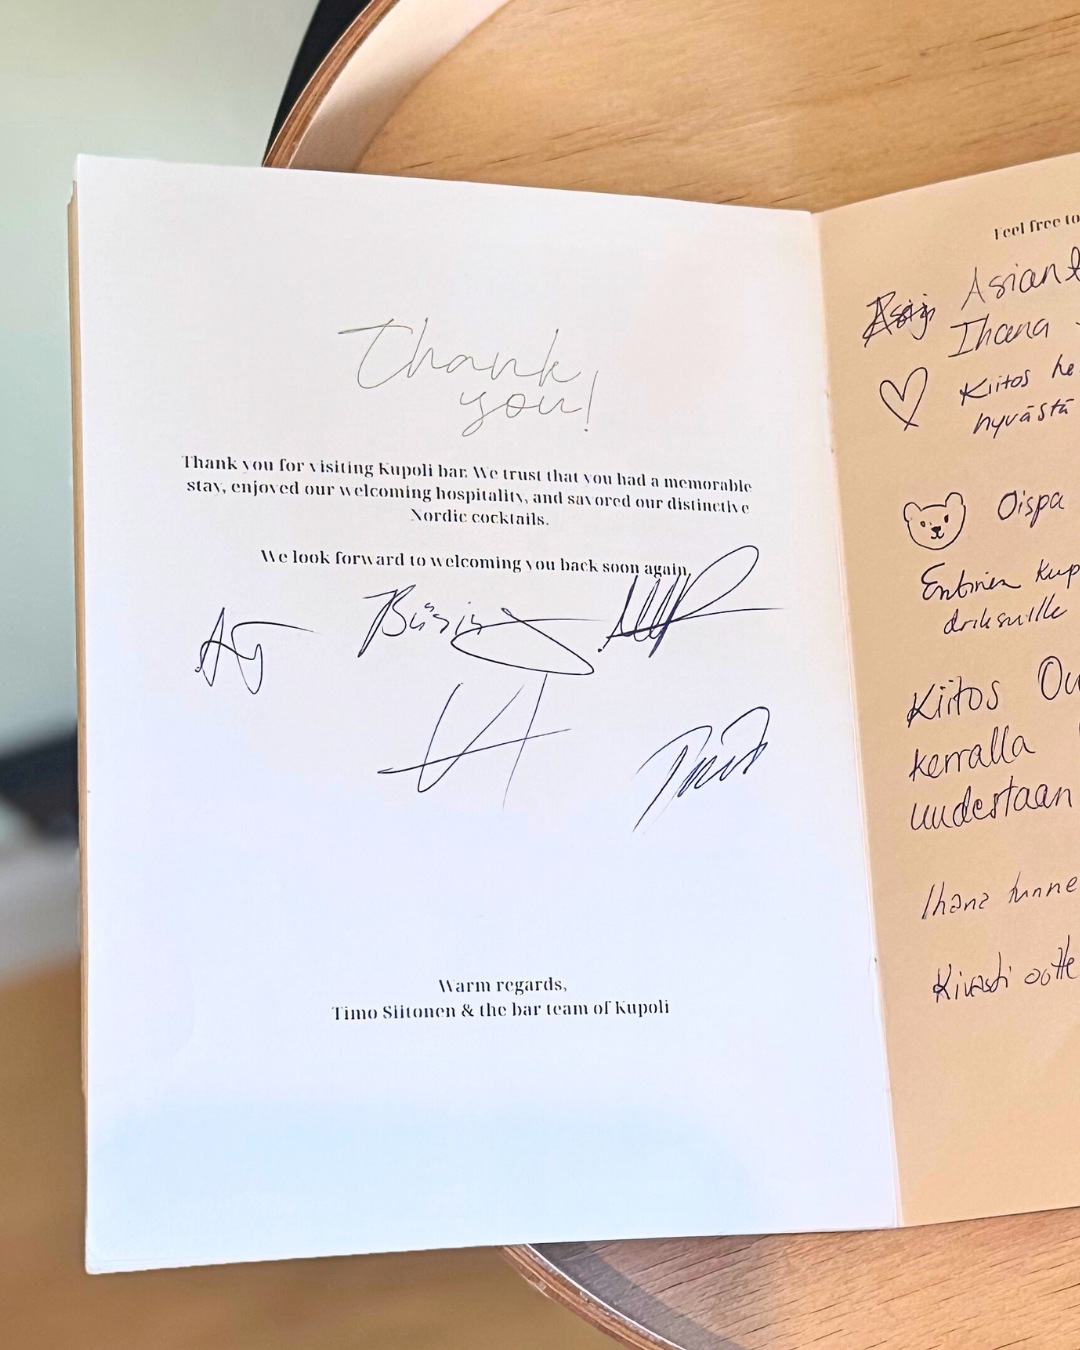 Thank
you!
Thank you for visiting Kupoli bar. We trust that you had a memorable
stay, enjoyed our welcoming hospitality, and savored our distinctive
Nordic cocktails.
We look forward to welcoming you back soon again.
Warm regards,
Timo Siitonen & the bar team of Kupoli
Feel free to
Ihana
Kiitos he
hyvästä
Oispa
Entinen Kup
Kiitos Ou
kerralla
uudestaan
Ihana tunne
Kivasti